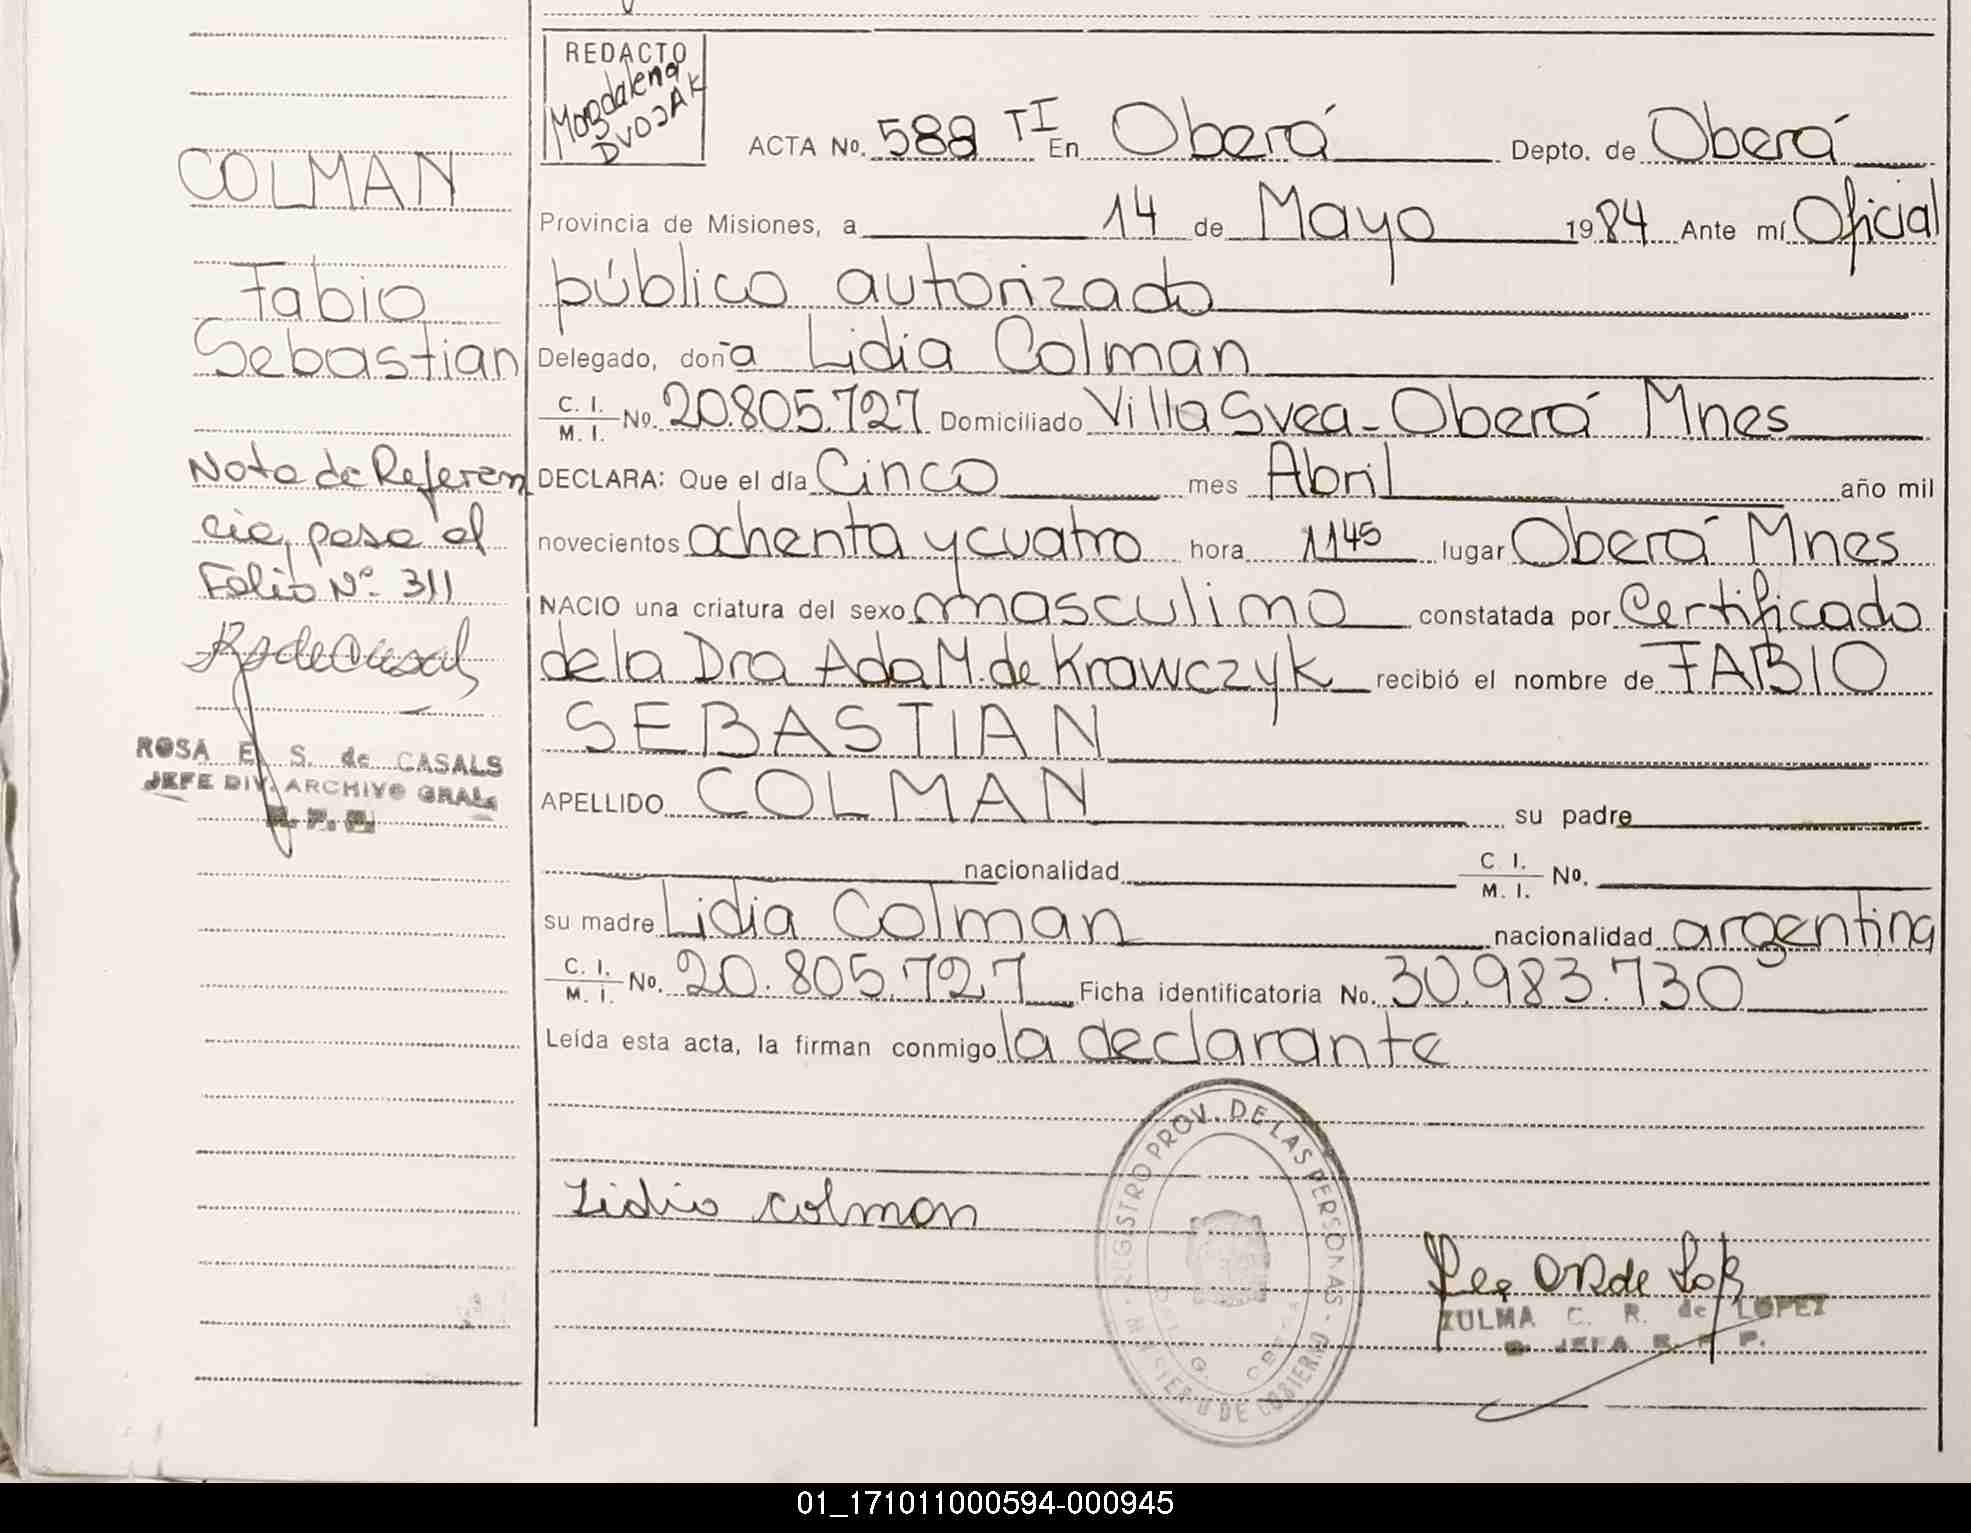 REDACTO
Magdalena
DVOJAK
ACTA No. 588 TI En Oberá Depto. de Oberá
Provincia de Misiones, a 14 de Mayo 1984 Ante mí Oficial
público autorizado
Delegado, doña Lidia Colman
C. I. M. I. No. 20.805.727 Domiciliado Villa Svea - Oberá Mnes
DECLARA: Que el día Cinco mes Abril año mil
novecientos ochenta y cuatro hora 1145 lugar Oberá Mnes
NACIO una criatura del sexo masculino constatada por Certificado
de la Dra Ada M. de Krawczyk recibió el nombre de FABIO
SEBASTIAN
APELLIDO COLMAN su padre
nacionalidad C. I. M. I. No.
su madre Lidia Colman nacionalidad argentina
C. I. M. I. No. 20.805.727 Ficha identificatoria No. 30.983.730
Leída esta acta, la firman conmigo la declarante
Lidia Colman
REGISTRO PROV. DE LAS PERSONAS
MINISTERIO DE GOBIERNO
ZULMA C. R. de LOPEZ
JEFA R. P. P.
COLMAN
Fabio
Sebastian
Nota de Referen
cia, pasa al
Folio Nº 311
ROSA E. S. de CASALS
JEFE DIV. ARCHIVO GRAL.
R. P. P.
01_171011000594-000945